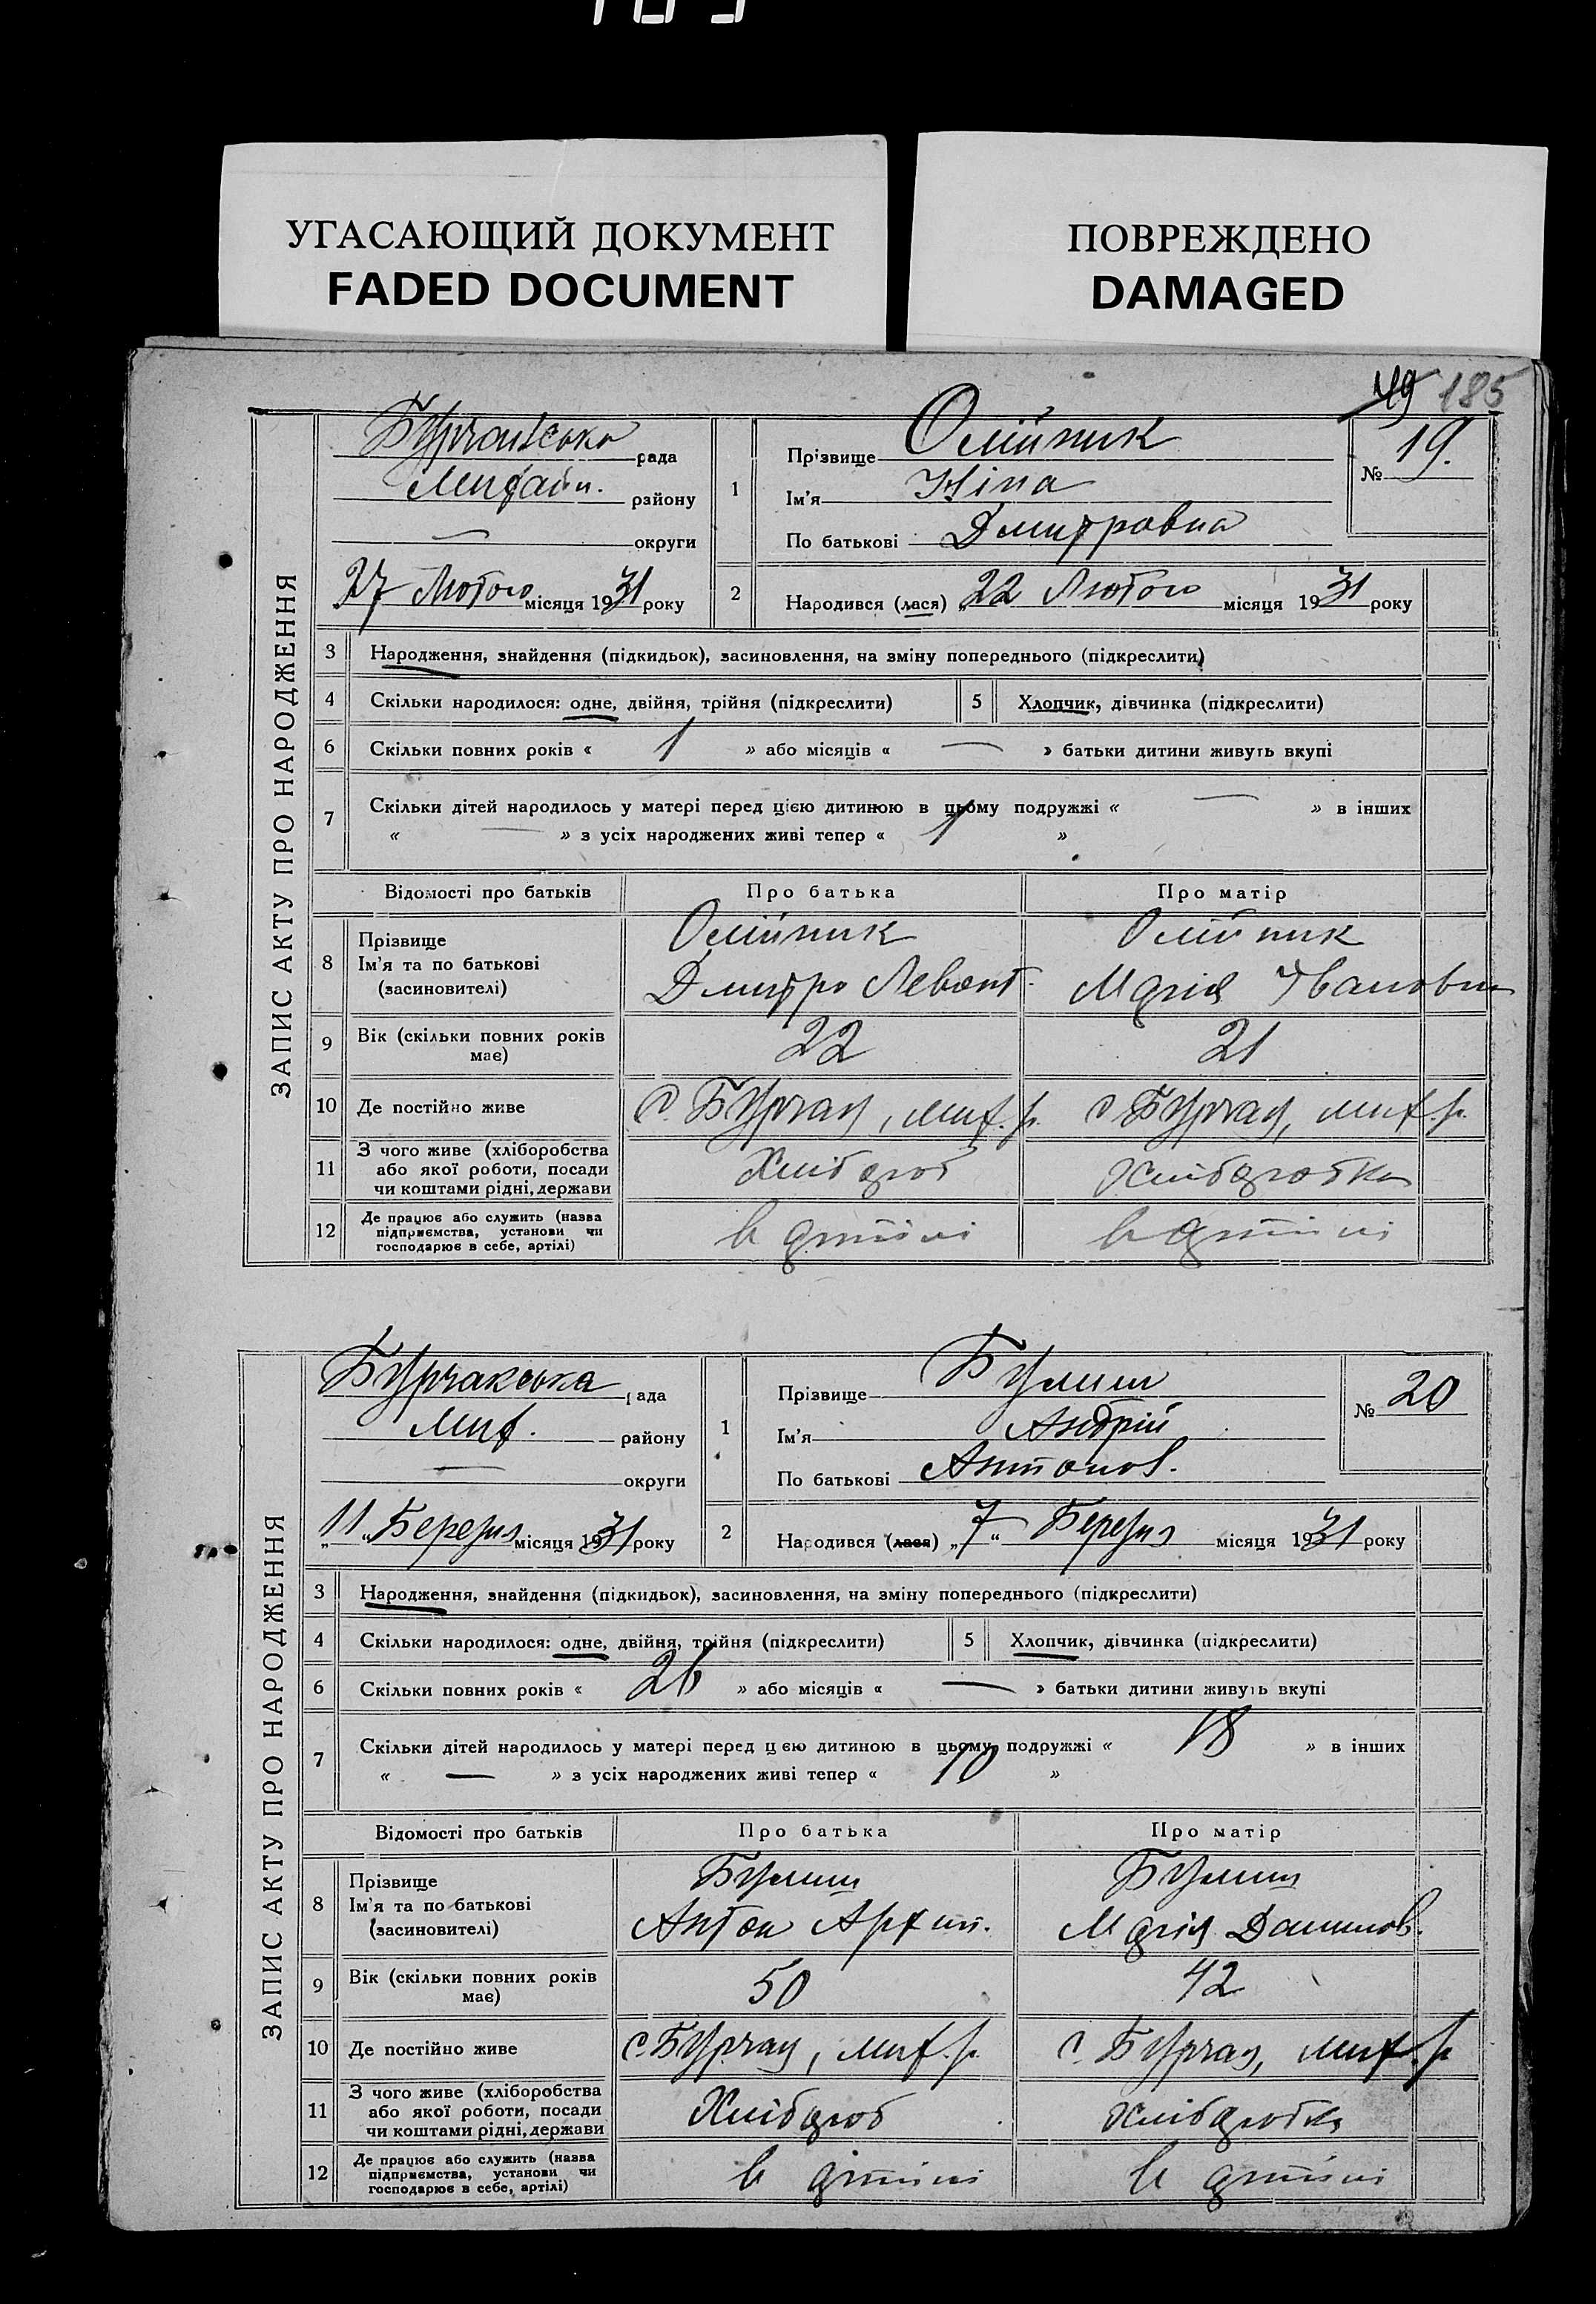 УГАСАЮЩИЙ ДОКУМЕНТ
FADED DOCUMENT
ПОВРЕЖДЕНО
DAMAGED
49 185
ЗАПИС АКТУ ПРО НАРОДЖЕННЯ
Бурчакська рада
району
округи
27 Лютого місяця 1931 року
1 Прізвище Олійник
Ім'я Ніна
По батькові Дмитровна
№ 19.
2 Народився (лася) „ 22 Лютого місяця 1931 року
3 Народження, знайдення (підкидьок), засиновлення, на зміну попереднього (підкреслити)
4 Скільки народилося: одне, двійня, трійня (підкреслити) 5 Хлопчик, дівчинка (підкреслити)
6 Скільки повних років « 1 » або місяців « — » батьки дитини живуть вкупі
7 Скільки дітей народилось у матері перед цією дитиною в цьому подружжі « — » в інших
« — » з усіх народжених живі тепер « 1 »
Відомості про батьків Про батька Про матір
8 Прізвище Олійник Олійник
Ім'я та по батькові
(засиновителі) Дмитро Левонт. Марія Івановна
9 Вік (скільки повних років має) 22 21
10 Де постійно живе с. Бурчак, мих. р. с. Бурчак, мих. р.
11 З чого живе (хліборобства
або якої роботи, посади
чи коштами рідні, держави Хлібороб Хліборобка
12 Де працює або служить (назва
підприємства, установи чи
господарює в себе, артілі) в артілі в артілі
ЗАПИС АКТУ ПРО НАРОДЖЕННЯ
Бурчакська рада
Мих. району
округи
„11„ Березня місяця 1931 року
1 Прізвище
Ім'я Андрій
По батькові Антонов.
№ 20
2 Народився (лася) „7“ Березня місяця 1931 року
3 Народження, знайдення (підкидьок), засиновлення, на зміну попереднього (підкреслити)
4 Скільки народилося: одне, двійня, трійня (підкреслити) 5 Хлопчик, дівчинка (підкреслити)
6 Скільки повних років « 26 » або місяців « — » батьки дитини живуть вкупі
7 Скільки дітей народилось у матері перед цією дитиною в цьому подружжі « 18 » в інших
« — » з усіх народжених живі тепер « 10 »
Відомості про батьків Про батька Про матір
8 Прізвище
Ім'я та по батькові
(засиновителі) Антон Архип. Марія
9 Вік (скільки повних років має) 50 42
10 Де постійно живе с. Бурчак, мих. р. с. Бурчак, мих. р.
11 З чого живе (хліборобства
або якої роботи, посади
чи коштами рідні, держави Хлібороб Хліборобка
12 Де працює або служить (назва
підприємства, установи чи
господарює в себе, артілі) в артілі в артілі